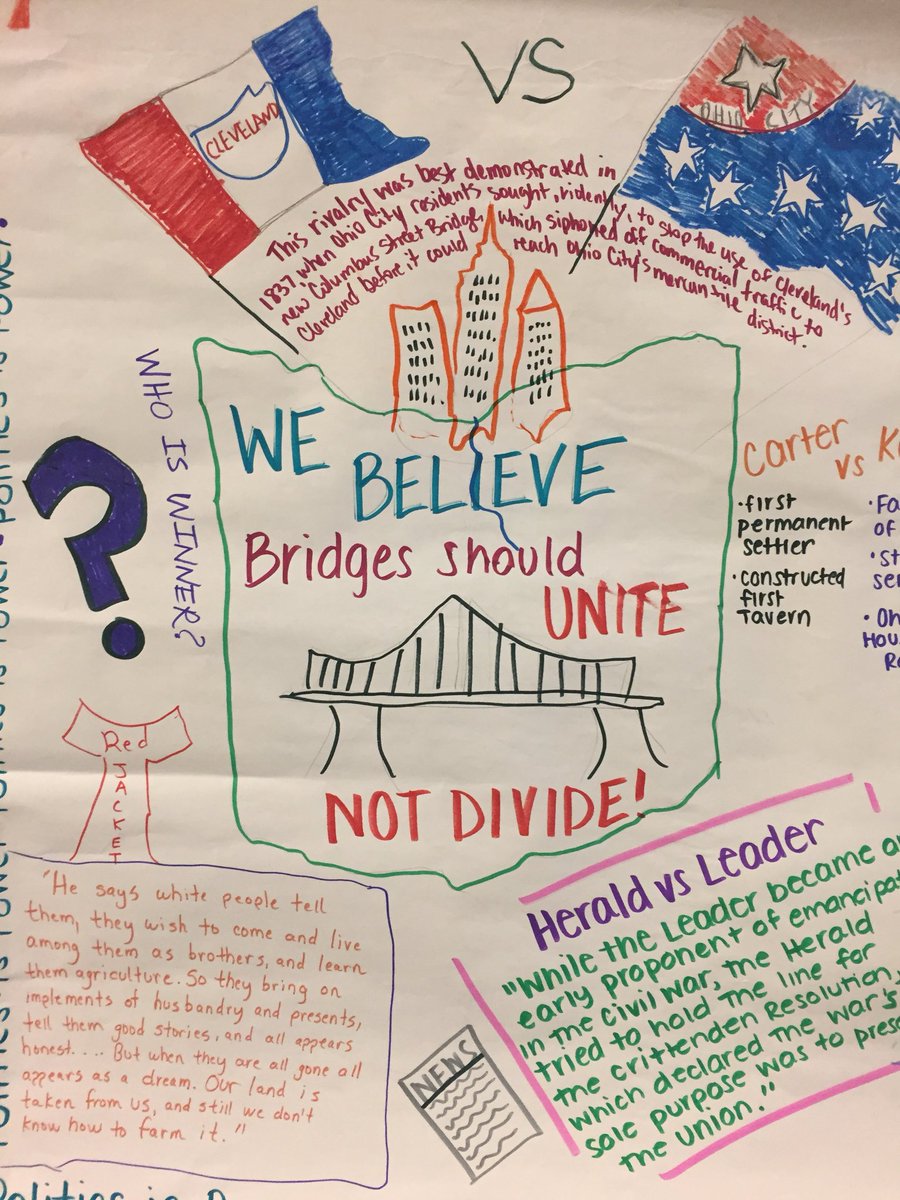 VS
CLEVELAND
OHIO CITY
This rivalry was best demonstrated in
1837, when Ohio City residents sought, violently, to stop the use of Cleveland's
new Columbus Street Bridge, which siphoned off commercial traffic to
Cleveland before it could reach Ohio City's mercantile
district.
WHO IS WINNER?
?
WE
BELIEVE
Bridges should
UNITE
NOT DIVIDE!
Carter
vs
•first
permanent
settler
•constructed
first
Tavern
Red
JACKET
"He says white people tell
them, they wish to come and live
among them as brothers, and learn
them agriculture. So they bring on
implements of husbandry and presents,
tell them good stories, and all appears
honest.... But when they are all gone all
appears as a dream. Our land is
taken from us, and still we don't
know how to farm it."
Herald vs Leader
"While the Leader became an
early proponent of
in the civil war, the Herald
tried to hold the line for
the crittenden Resolution,
which declared the war's
sole purpose was to
the union."
NEWS
Politics is Power. Politics is Power. Politics is Power.
Politics is